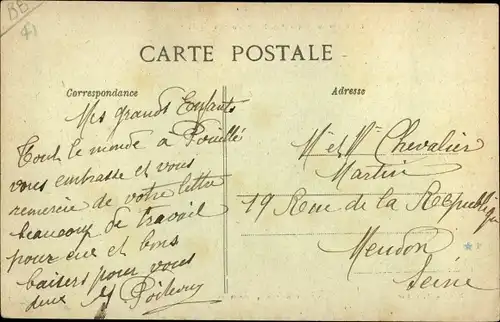 CARTE POSTALE
Correspondance
Adresse
Mes grands Enfants
Tout le monde a Pouillé
vous embrasse et vous
remercie de votre lettre
beaucoup de travail
pour eux et bons
baisers pour vous
deux
Mr et Mme Chevalier
Martin
19 Rue de la Republique
Meudon
Seine